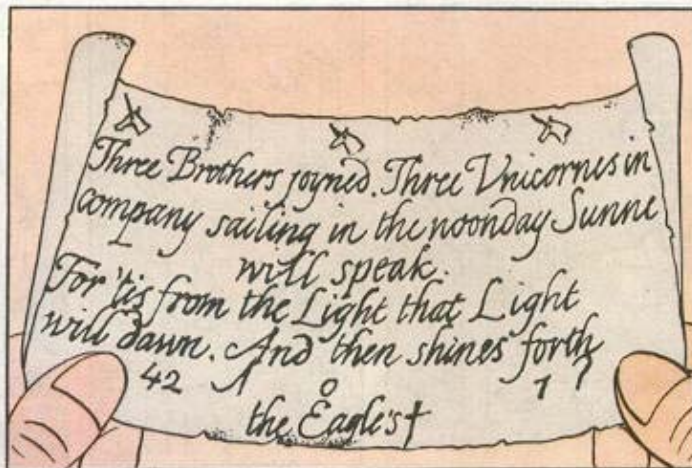 Three Brothers joyned. Three Unicornes in
company sailing in the noonday Sunne
will speak.
For 'tis from the Light that Light
will dawn. And then shines forth
42 1 0 7 ?
the Eagle's †